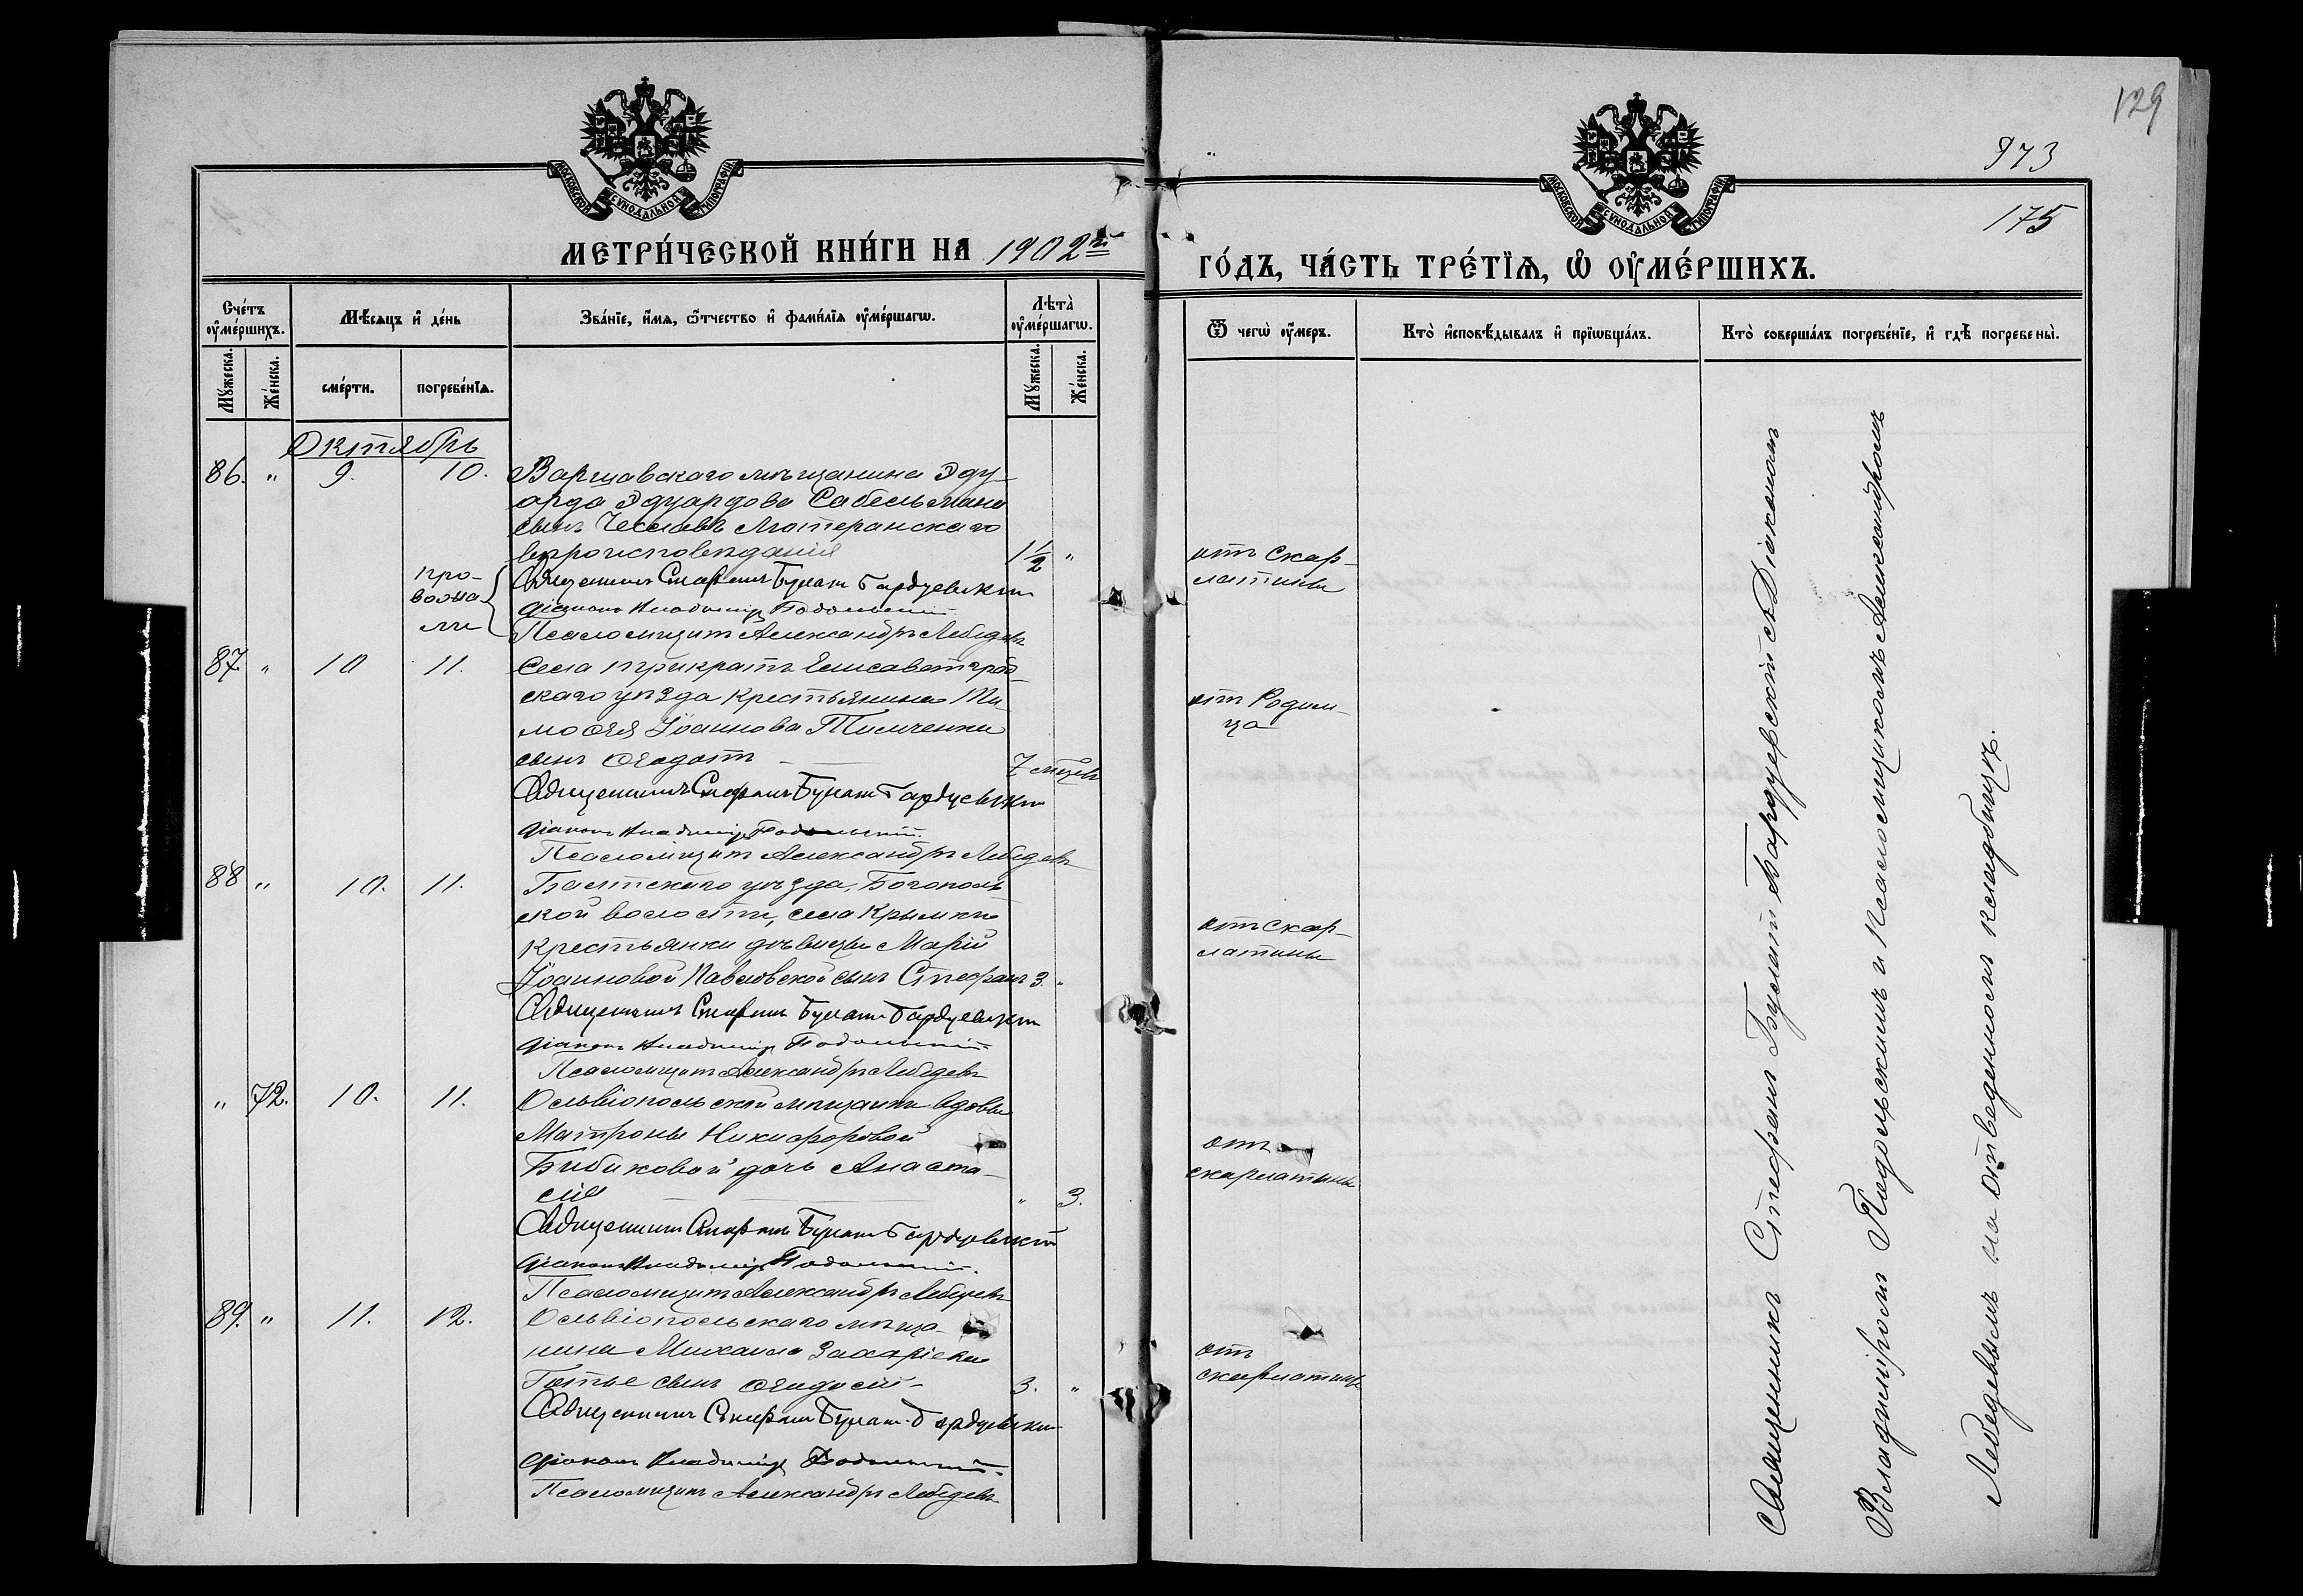 129
973
175
МОСКОВСКОЙ СѴНОДАЛЬНОЙ ТИПОГРАФІИ
МОСКОВСКОЙ СѴНОДАЛЬНОЙ ТИПОГРАФІИ
МЕТРИ́ЧЕСКОЙ КНИ́ГИ НА 1902й
ГО́ДЪ, ЧА́СТЬ ТРЕ́ТІѦ, Ѡ҆ ОУ҆МЕ́РШИХЪ.
Сче́тъ оу҆ме́ршихъ.
Мѣ́сяцъ и҆ де́нь
Зва́нїе, и҆́мѧ, ѻ҆́тчество и҆ фами́лїѧ оу҆ме́ршагѡ.
Лѣта̀ оу҆ме́ршагѡ.
Ѿ чегѡ̀ оу҆́меръ.
Кто̀ и҆сповѣ́дывалъ и҆ прїѡбща́лъ.
Кто̀ соверша́лъ погребе́нїе, и҆ гдѣ̀ погребены̀.
Мꙋ́жеска.
Же́нска.
сме́рти.
погребе́нїѧ.
Мꙋ́жеска.
Же́нска.
Октябрь
86. " 9. 10. Варшавскаго мѣщанина Эду-
арда Эдуардова Сабельмана
сынъ Чеславъ Лютеранскаго
вѣроисповѣданія 1½ "
отъ скар-
латины
про-
вожа-
ли
Священникъ Стефанъ Булат Бардуевскій
Діаконъ Владиміръ Подольскій
Псаломщикъ Александръ Лебедевъ
87. " 10 11. Села Прикратъ Елисаветград-
скаго уѣзда крестьянина Ти-
моѳея Іоаннова Тимченки
сынъ Ѳеодотъ 7 мѣсцевъ
отъ Родим-
ца
Священникъ Стефанъ Булат Бардуевскій
Діаконъ Владиміръ Подольскій.
Псаломщикъ Александръ Лебедевъ
88 " 10. 11. Балтскаго уѣзда, Богополь
ской волости, села Крымки
крестьянки дѣвицы Маріи
Іоанновой Павловской сынъ Стефанъ 3. "
отъ скар-
латины
Священникъ Стефанъ Булат Бардуевскій
Діаконъ Владиміръ Подольскій.
Псаломщикъ Александръ Лебедевъ
" 72. 10. 11. Ольвіопольской мѣщанки вдовы
Матроны Никифоровой
Бибиковой дочь Анаста-
сія " 3.
отъ
скарлатины
Священникъ Стефанъ Булат Бардуевскій
Діаконъ Владиміръ Подольскій.
Псаломщикъ Александръ Лебедевъ
89. " 11. 12. Ольвіопольскаго мѣща-
нина Михаила Захаріева
Готье сынъ Ѳеодосій 3. "
отъ
скарлатины
Священникъ Стефанъ Булат-Бардуевскій
Діаконъ Владиміръ Подольскій.
Псаломщикъ Александръ Лебедевъ
Священникъ Стефанъ Булатъ Бардуевскій съ Діакономъ
Владиміромъ Подольскимъ и Псаломщикомъ Александромъ
Лебедевымъ на отведенномъ кладбищѣ.